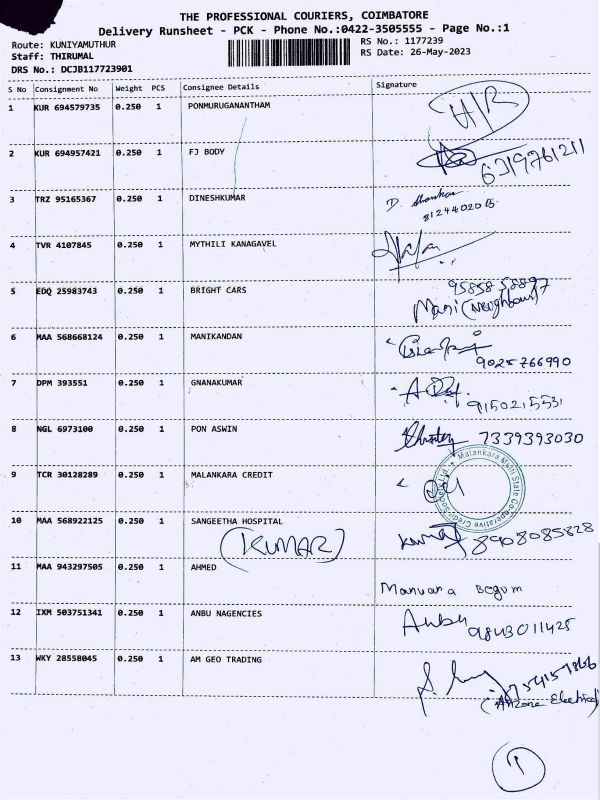 THE PROFESSIONAL COURIERS, COIMBATORE
Delivery Runsheet - PCK - Phone No.:0422-3505555 - Page No.:1
Route: KUNIYAMUTHUR
Staff: THIRUMAL
DRS No.: DCJB117723901
RS No.: 1177239
RS Date: 26-May-2023
S No Consignment No Weight PCS Consignee Details Signature
1 KUR 694579735 0.250 1 PONMURUGANANTHAM H/R
2 KUR 694957421 0.250 1 FJ BODY 6319761211
3 TRZ 95165367 0.250 1 DINESHKUMAR D.
4 TVR 4107845 0.250 1 MYTHILI KANAGAVEL
5 EDQ 25983743 0.250 1 BRIGHT CARS
Mani (Neighbour)
6 MAA 568668124 0.250 1 MANIKANDAN
9025766990
7 DPM 393551 0.250 1 GNANAKUMAR
9150215531
8 NGL 6973100 0.250 1 PON ASWIN 7339393030
9 TCR 30128289 0.250 1 MALANKARA CREDIT
Malankara Multi State Co-operative Credit Society Ltd.
10 MAA 568922125 0.250 1 SANGEETHA HOSPITAL
(KUMAR) Kumar 8908085828
11 MAA 943297505 0.250 1 AHMED
Manuara Begum
12 IXM 503751341 0.250 1 ANBU NAGENCIES Anbu
9843011425
13 WKY 28558045 0.250 1 AM GEO TRADING
1